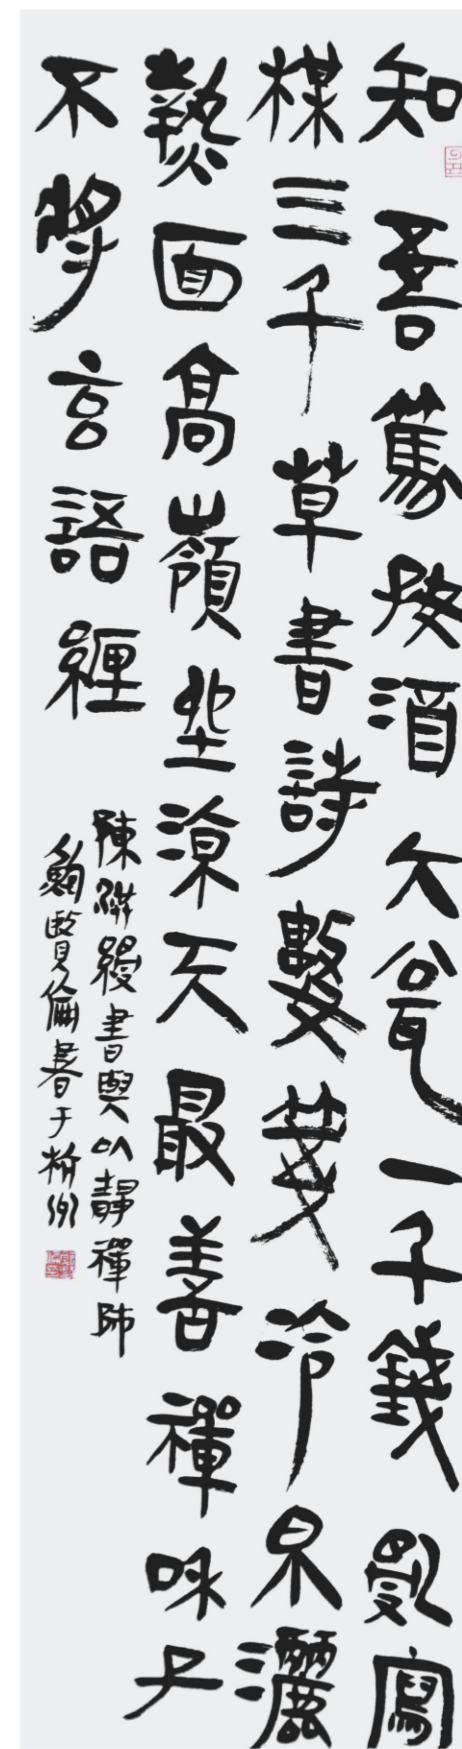 知吾篤好酒大瓮一千錢亂寫
楳三千草書詩數箋冷泉灑
熱面高嶺坐涼天最善禪味子
不將言語纏
陳洪綬書與以靜禪師
鮑賢倫書于杭州